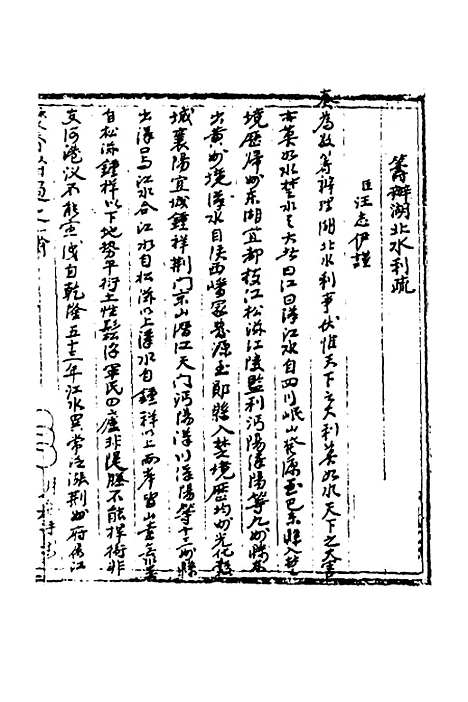 籌辦湖北水利疏
臣汪志伊謹
奏為敬籌辦理湖北水利事伏惟天下之大利莫如水天下之大害
亦莫如水楚水之大者曰江曰漢江水自四川岷山發源至巴東縣入楚
境歷歸州東湖宜都枝江松滋江陵監利沔陽漢陽等九州縣
出黃州境漢水自陝西嶓冢發源至鄖縣入楚境歷均州光化穀
城襄陽宜城鍾祥荊門京山潛江天門沔陽漢川漢陽等十三州縣
出漢口與江水合江水自松滋以上漢水自鍾祥以上兩岸皆山
自松滋鍾祥以下地勢平衍土性鬆浮軍民田廬非堤塍不能捍衛非
支河港汊不能宣洩自乾隆五十三年江水異常泛漲荊州府濱江